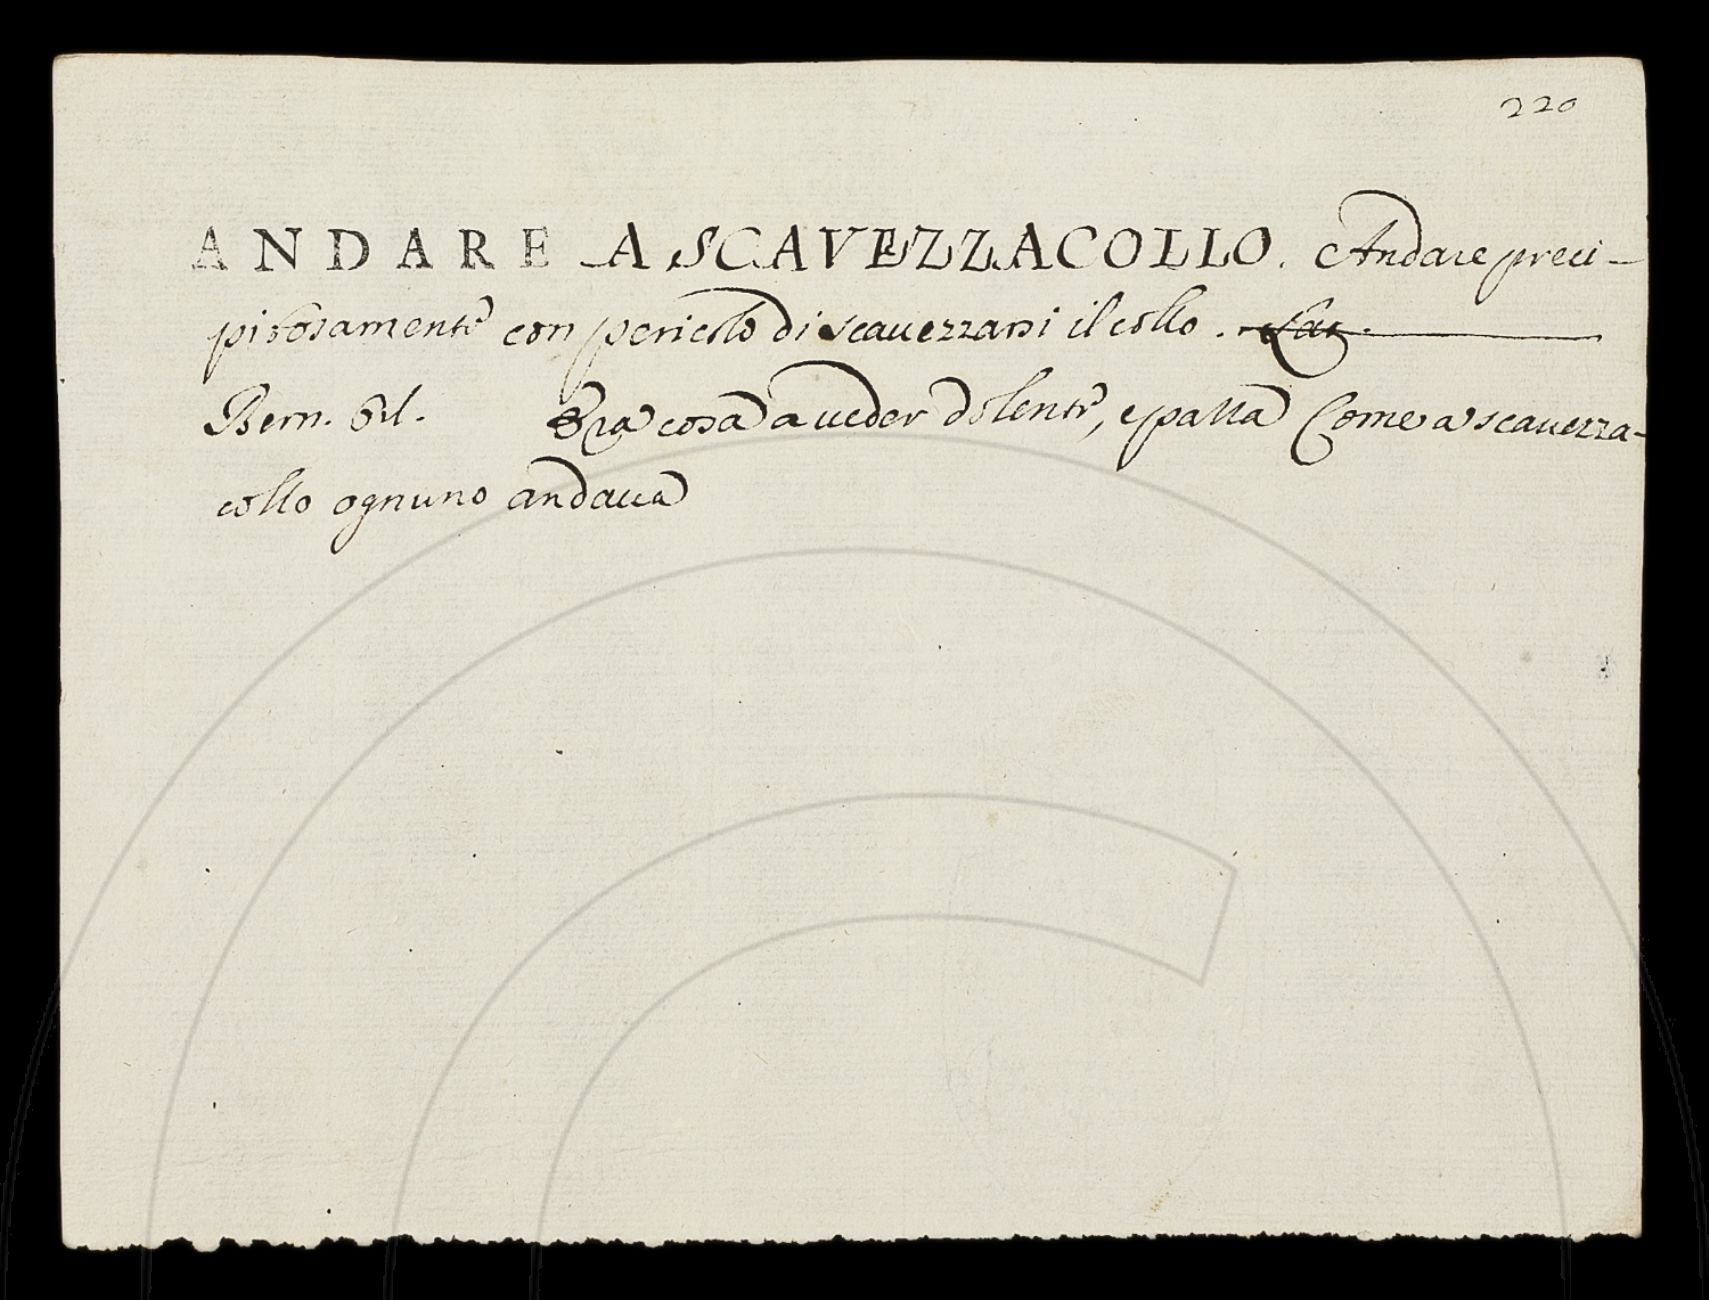 220
ANDARE A SCAVEZZACOLLO. Andare preci-
pitosamente con pericolo di scavezzarsi il collo. Lat.
Bern. Orl. Era cosa a veder dolente, e patta Come a scavezza-
collo ognuno andava